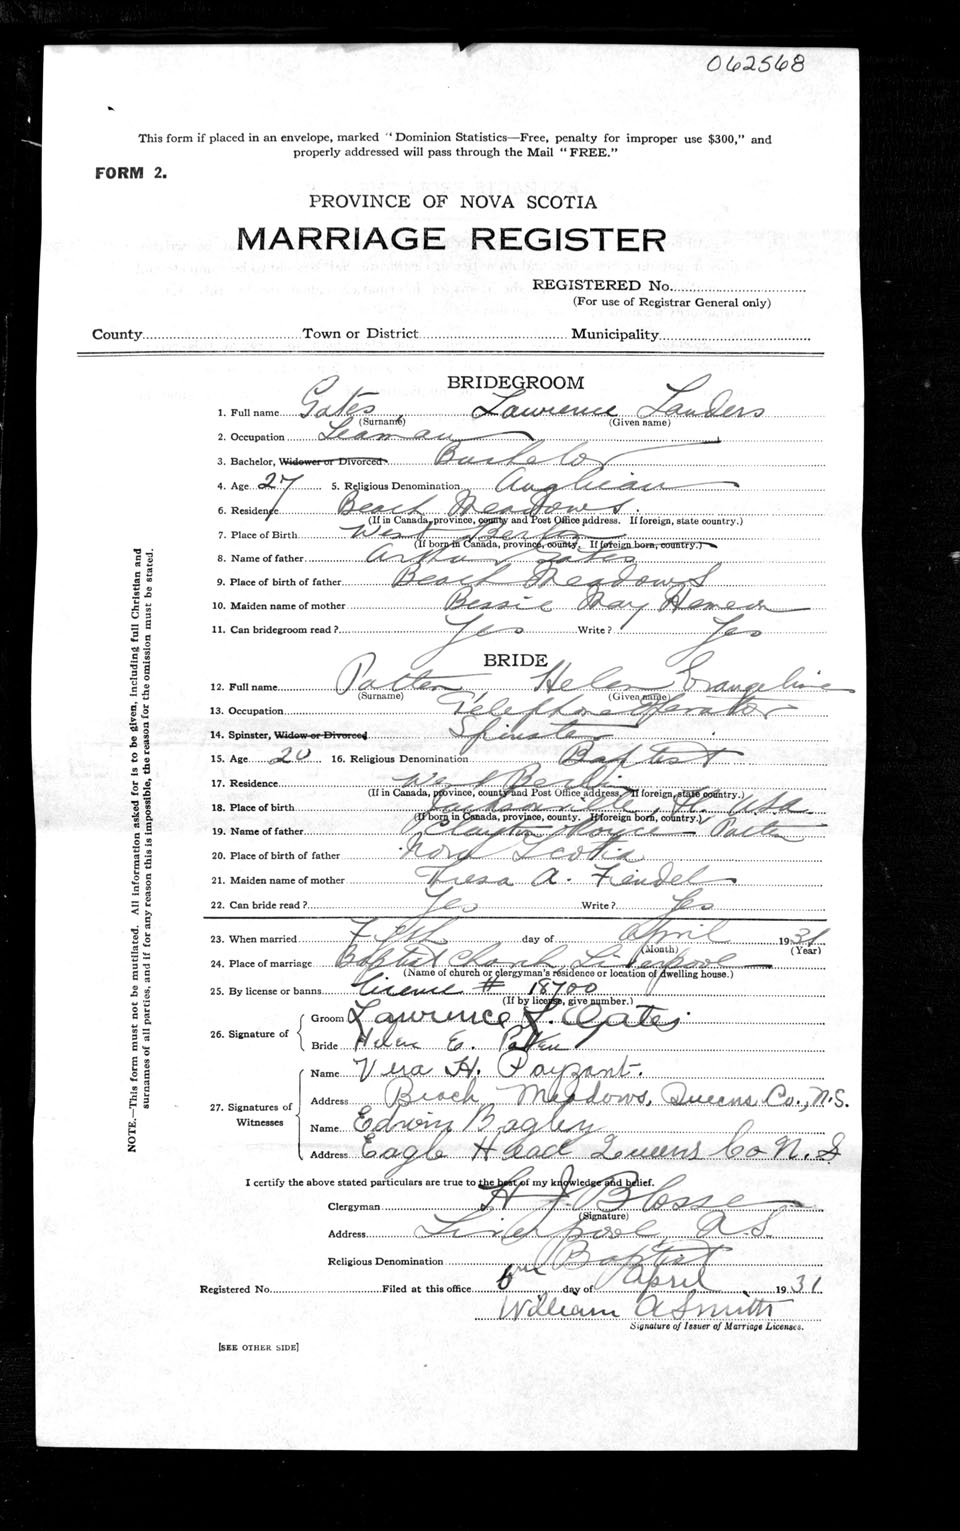 062568
This form if placed in an envelope, marked "Dominion Statistics—Free, penalty for improper use $300," and
properly addressed will pass through the Mail "FREE."
FORM 2.
PROVINCE OF NOVA SCOTIA
MARRIAGE REGISTER
REGISTERED No.
(For use of Registrar General only)
County Town or District Municipality
BRIDEGROOM
1. Full name Gates, Lawrence Landers
(Surname) (Given name)
2. Occupation Seaman
3. Bachelor, Widower or Divorced Bachelor
4. Age 27 5. Religious Denomination Anglican
6. Residence Beach Meadows.
(If in Canada, province, county and Post Office address. If foreign, state country.)
7. Place of Birth West Berlin
(If born in Canada, province, county. If foreign born, country.)
8. Name of father Arthur Gates
9. Place of birth of father Beach Meadows
10. Maiden name of mother Bessie May
11. Can bridegroom read? Yes Write? Yes
BRIDE
12. Full name Patten Helen Evangeline
(Surname) (Given name)
13. Occupation Telephone Operator
14. Spinster, Widow or Divorced Spinster
15. Age 20 16. Religious Denomination Baptist
17. Residence West Berlin
(If in Canada, province, county and Post Office address, If foreign, state country.)
18. Place of birth Jacksonville, Fl. USA
(If born in Canada, province, county. If foreign born, country.)
19. Name of father Clayton Royce Patten
20. Place of birth of father Nova Scotia
21. Maiden name of mother Theresa A. Fiendel
22. Can bride read? Yes Write? Yes
23. When married day of April 1931
(Month) (Year)
24. Place of marriage Baptist Church Liverpool
(Name of church or clergyman's residence or location of dwelling house.)
25. By license or banns License # 18700
(If by license, give number.)
26. Signature of Groom Lawrence L. Gates
Bride Helen E. Patten
27. Signatures of Witnesses Name Vera H. Payzant.
Address Beach Meadows, Queens Co., N.S.
Name Edwin Bagley
Address Eagle Head Queens Co N.S
I certify the above stated particulars are true to the best of my knowledge and belief.
Clergyman H J Blosse
(Signature)
Address Liverpool, N.S.
Religious Denomination Baptist
Registered No. Filed at this office 6 day of April 1931
William A Smith
Signature of Issuer of Marriage Licenses.
[SEE OTHER SIDE]
NOTE.—This form must not be mutilated. All information asked for is to be given, including full Christian and
surnames of all parties, and if for any reason this is impossible, the reason for the omission must be stated.